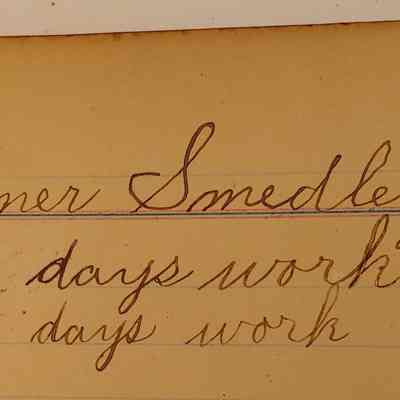 ner Smedle
days work
days work